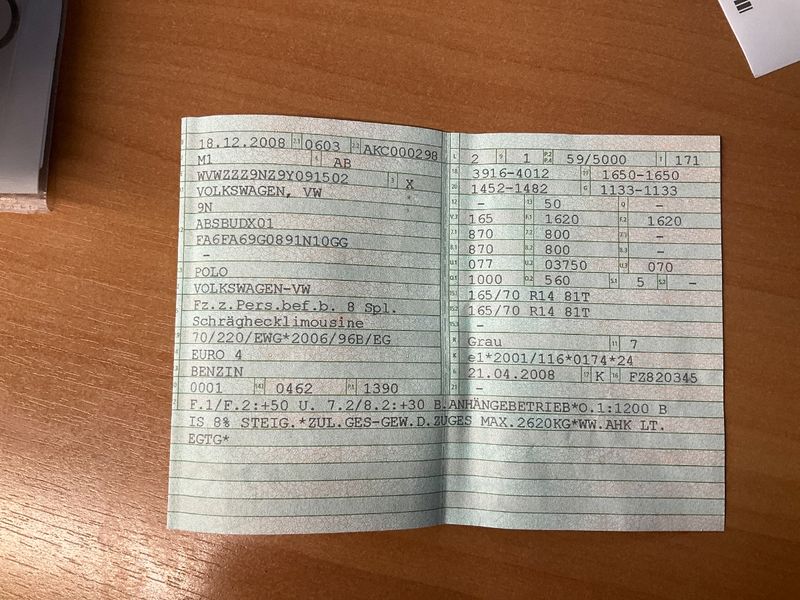 18.12.2008 0603 AKC000298
M1 AB
WVWZZZ9NZ9Y091502 X
VOLKSWAGEN, VW
9N
ABSBUDX01
FA6FA69G0891N10GG
-
POLO
VOLKSWAGEN-VW
Fz.z.Pers.bef.b. 8 Spl.
Schräghecklimousine
70/220/EWG*2006/96B/EG
EURO 4
BENZIN
0001 0462 1390
L 2 9 1 59/5000 T 171
18 3916-4012 19 1650-1650
20 1452-1482 G 1133-1133
12 - 13 50 Q -
V.7 165 F.1 1620 F.2 1620
7.1 870 7.2 800 7.3 -
8.1 870 8.2 800 8.3 -
U.1 077 U.2 03750 U.3 070
O.1 1000 O.2 560 S.1 5 S.2 -
15.1 165/70 R14 81T
15.2 165/70 R14 81T
15.3 -
R Grau 11 7
K e1*2001/116*0174*24
6 21.04.2008 17 K 16 FZ820345
21 -
F.1/F.2:+50 U. 7.2/8.2:+30 B.ANHÄNGEBETRIEB*O.1:1200 B
IS 8% STEIG.*ZUL.GES-GEW.D.ZUGES MAX.2620KG*WW.AHK LT.
EGTG*